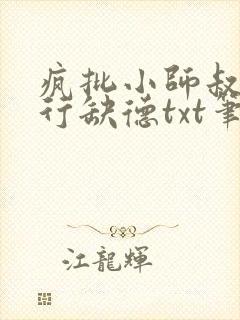 疯批小師叔
行缺德txt筆
江龍輝